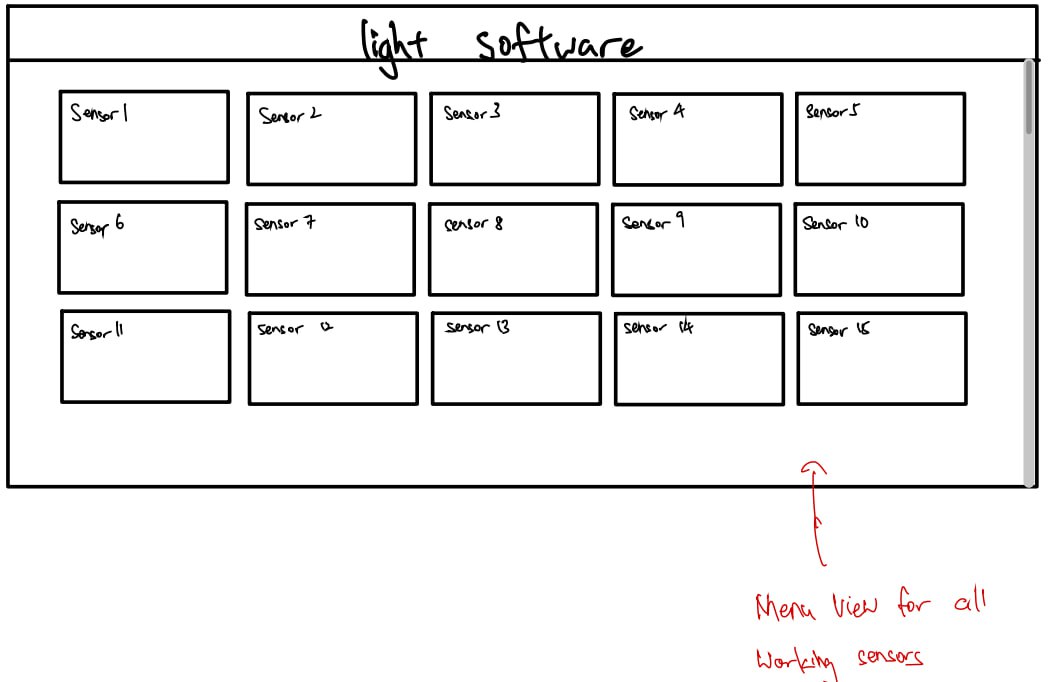 light software
Sensor 1 Sensor 2 Sensor 3 Sensor 4 Sensor 5
Sensor 6 Sensor 7 sensor 8 Sensor 9 Sensor 10
Sensor 11 sensor 12 sensor 13 sensor 14 Sensor 15
Menu View for all
working sensors